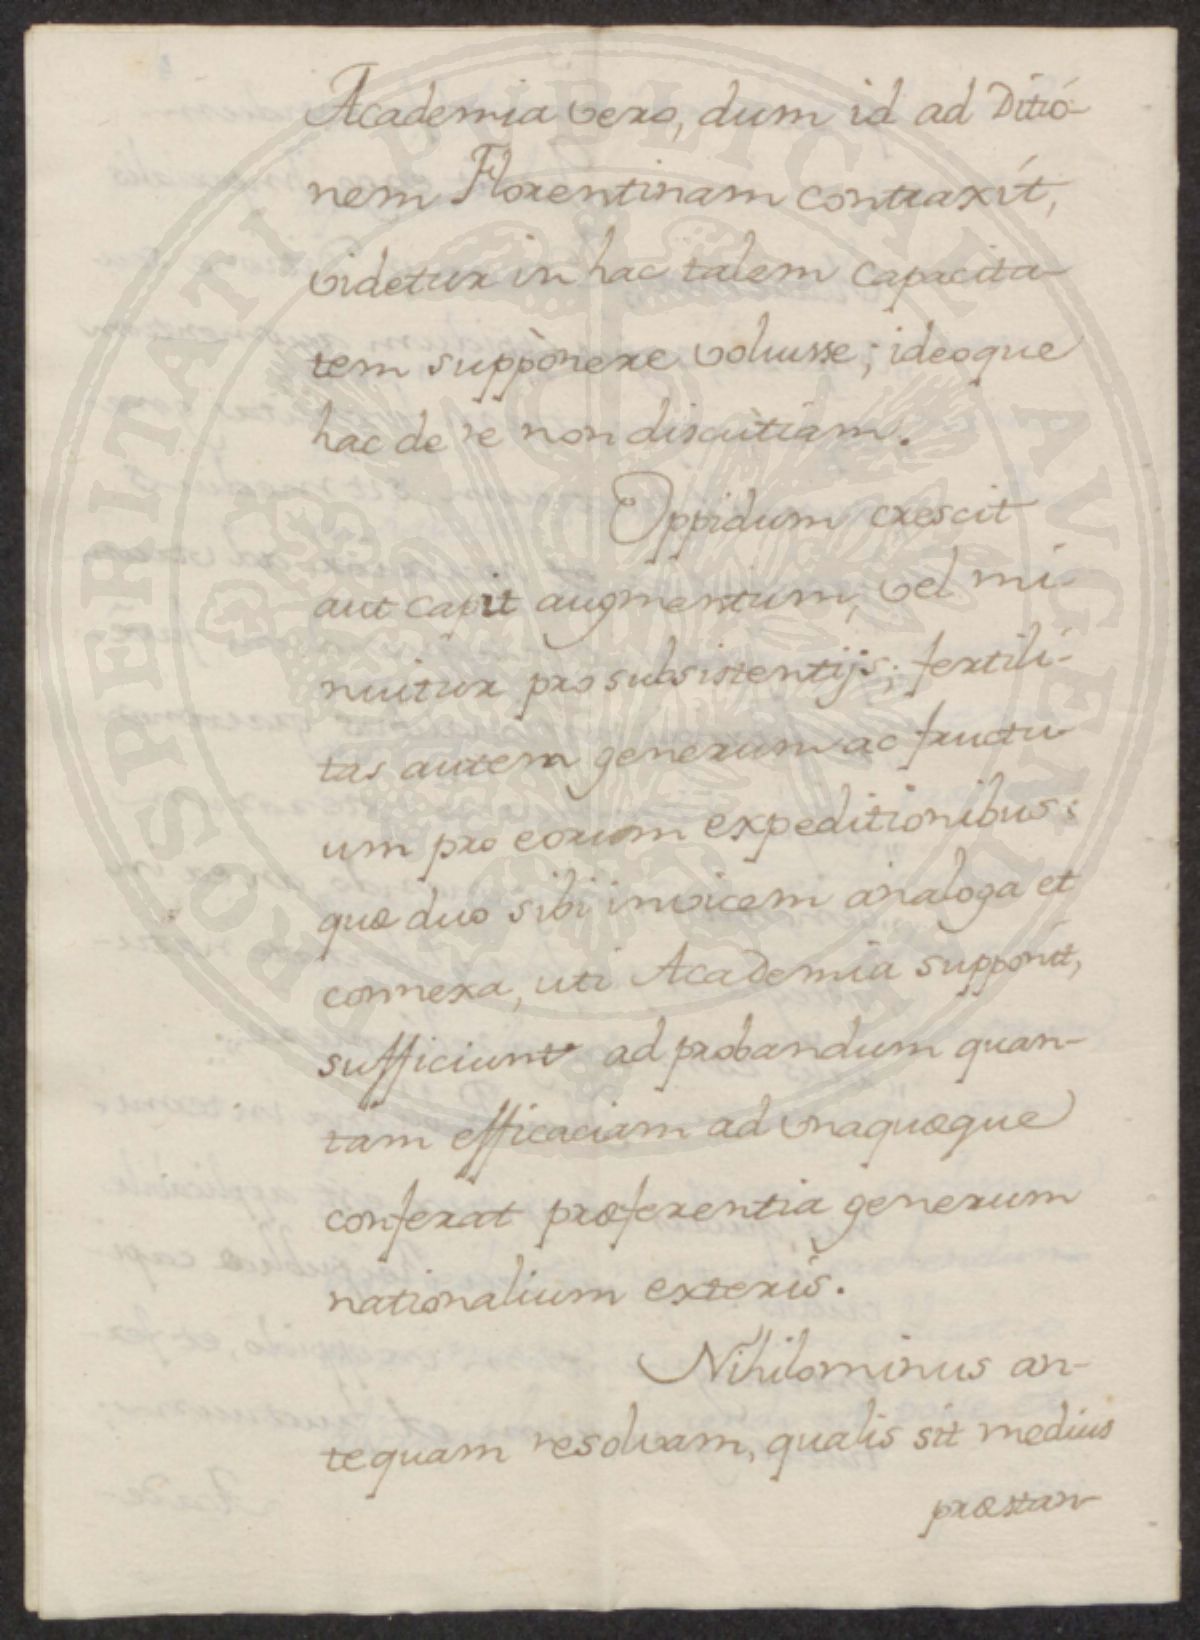 Academia vero, dum id ad Ditio-
nem Florentinam contraxit,
videtur in hac talem capacita-
tem suppònere voluisse; ideoque
hac de re non discutiam.
Oppidum crescit
aut capit augmentum, vel mi-
nuitur pro subsistentijs; fertili-
tas autem generum ac fructu-
um pro eorum expeditionibus:
quæ duo sibi invicem analoga et
connexa, uti Academia supponit,
sufficiunt ad probandum quan-
tam efficaciam ad unaquæque
conferat præferentia generum
nationalium exteris.
Nihilominus an-
tequam resolvam, qualis sit medius
præstan-
PROSPERITATI PUBLICAE AUGENDAE